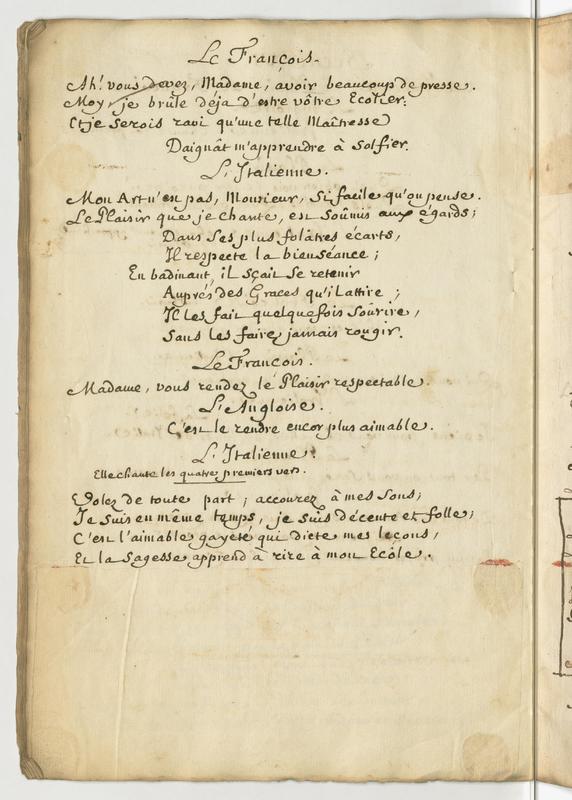 Le François.
Ah! vous devez, Madame, avoir beaucoup de presse.
Moy, je brûle déja d'estre vôtre Ecolier.
Et je serois ravi qu'une telle Maîtresse
Daignât m'apprendre à Solfier.
L'Italienne.
Mon Art n'est pas, Monsieur, si facile qu'on pense.
Le Plaisir que je chante, est soûmis aux égards;
Dans ses plus folâtres écarts,
Il respecte la bienséance;
En badinant, il sçait se retenir
Auprés des Graces qu'il attire;
Il les fait quelquefois soûrire,
Sans les faire jamais rougir.
Le François.
Madame, vous rendez le Plaisir respectable.
L'Angloise.
C'est le rendre encor plus aimable.
L'Italienne.
Elle chante les quatre premiers vers.
Volez de toute part; accourez à mes sons;
Je suis en même temps, je suis décente et folle;
C'est l'aimable gayeté qui dicte mes leçons,
Et la Sagesse apprend à rire à mon Ecôle.